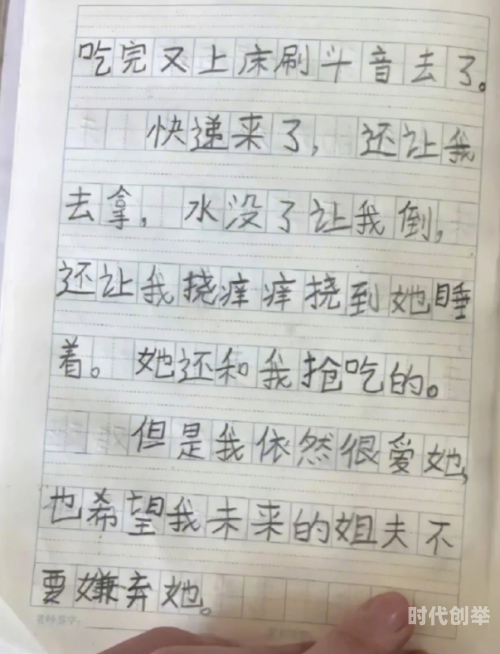 吃完又上床刷斗音去了。
快递来了，还让我
去拿，水没了让我倒，
还让我挠痒痒挠到她睡
着。她还和我抢吃的。
但是我依然很爱她，
也希望我未来的姐夫不
要嫌弃她。
老师签字：
时代创举